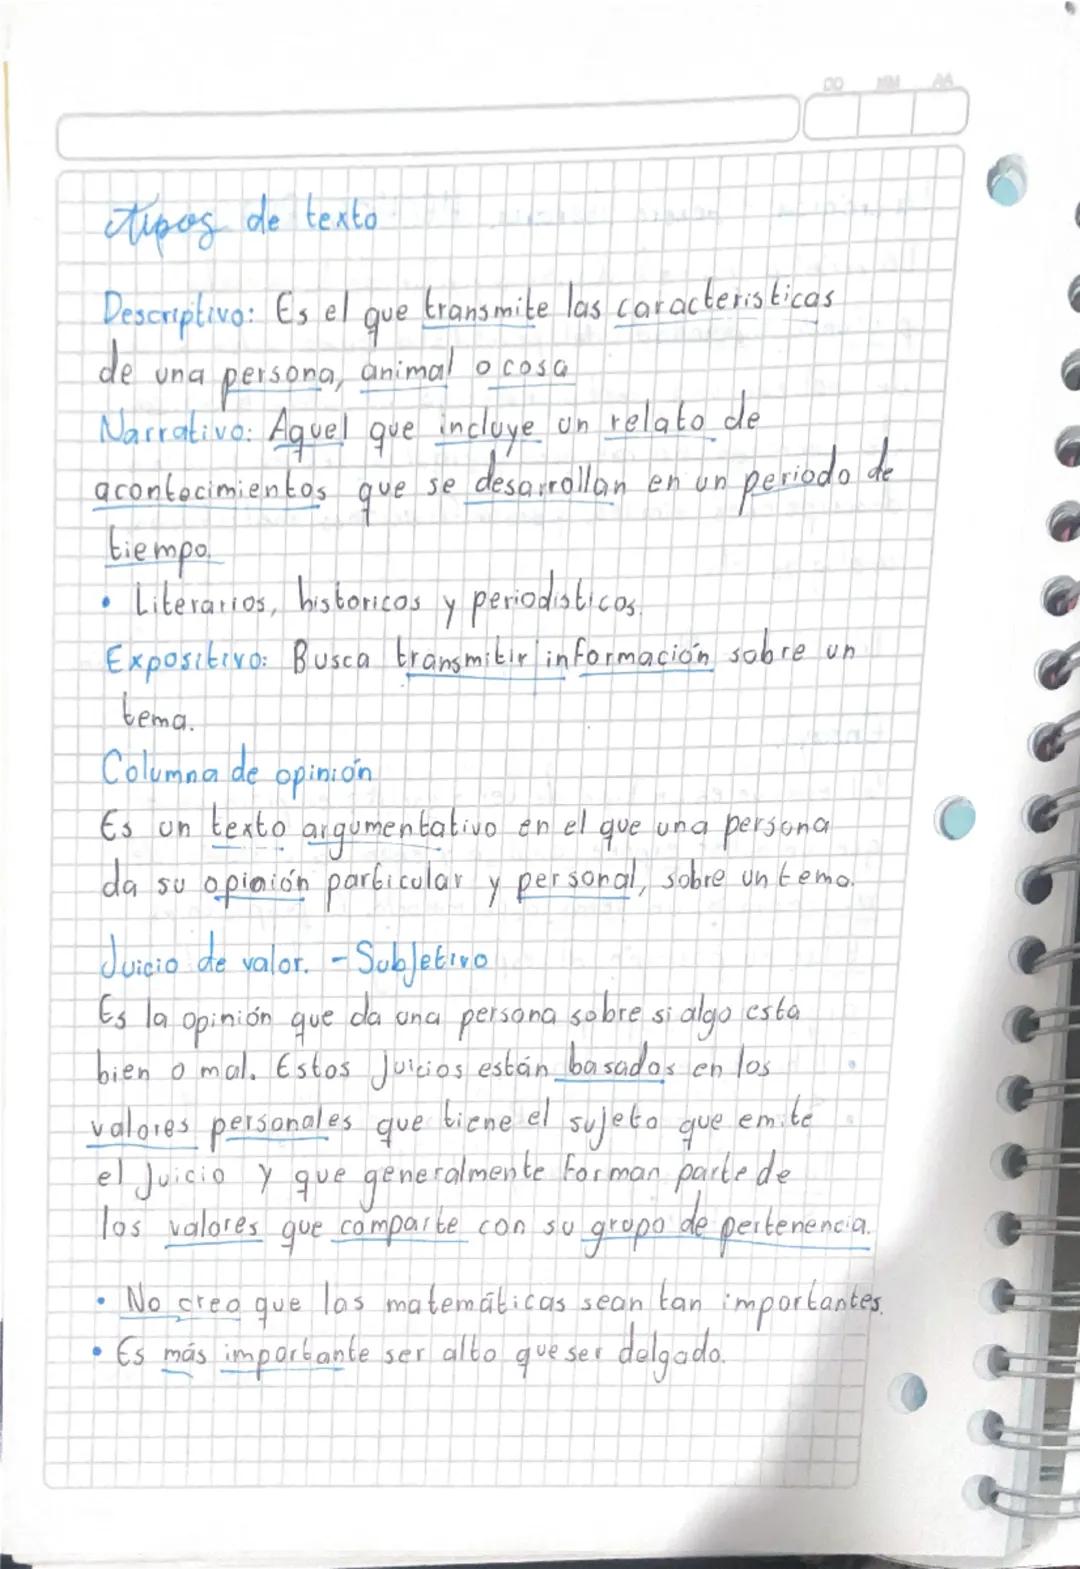 DD MM AA
tipos de texto
Descriptivo: Es el que transmite las caracteristicas
de una persona, animal o cosa
Narrativo: Aquel que incluye un relato de
acontecimientos que se desarrollan en un periodo de
tiempo.
• Literarios, historicos y periodisticos.
Expositivo: Busca transmitir información sobre un
tema.
Columna de opinión
Es un texto argumentativo en el que una persona
da su opinión particular y personal, sobre un tema.
Juicio de valor. - Subjetivo
Es la opinión que da una persona sobre si algo esta
bien o mal. Estos juicios están basados en los
valores personales que tiene el sujeto que emite
el juicio y que generalmente forman parte de
los valores que comparte con su grupo de pertenencia.
• No creo que las matemáticas sean tan importantes.
• Es más importante ser alto que ser delgado.